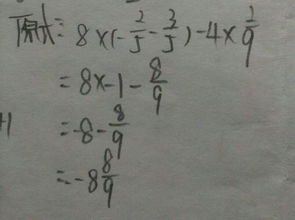 原式= 8×(-2/5-3/5)-4×2/9
=8×-1-8/9
=-8-8/9
=-8 8/9